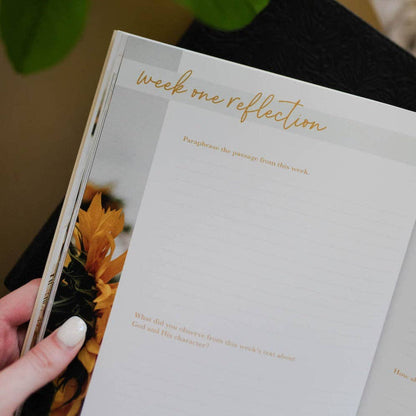 week one reflection
Paraphrase the passage from this week.
What did you observe from this week's text about
God and His character?
How